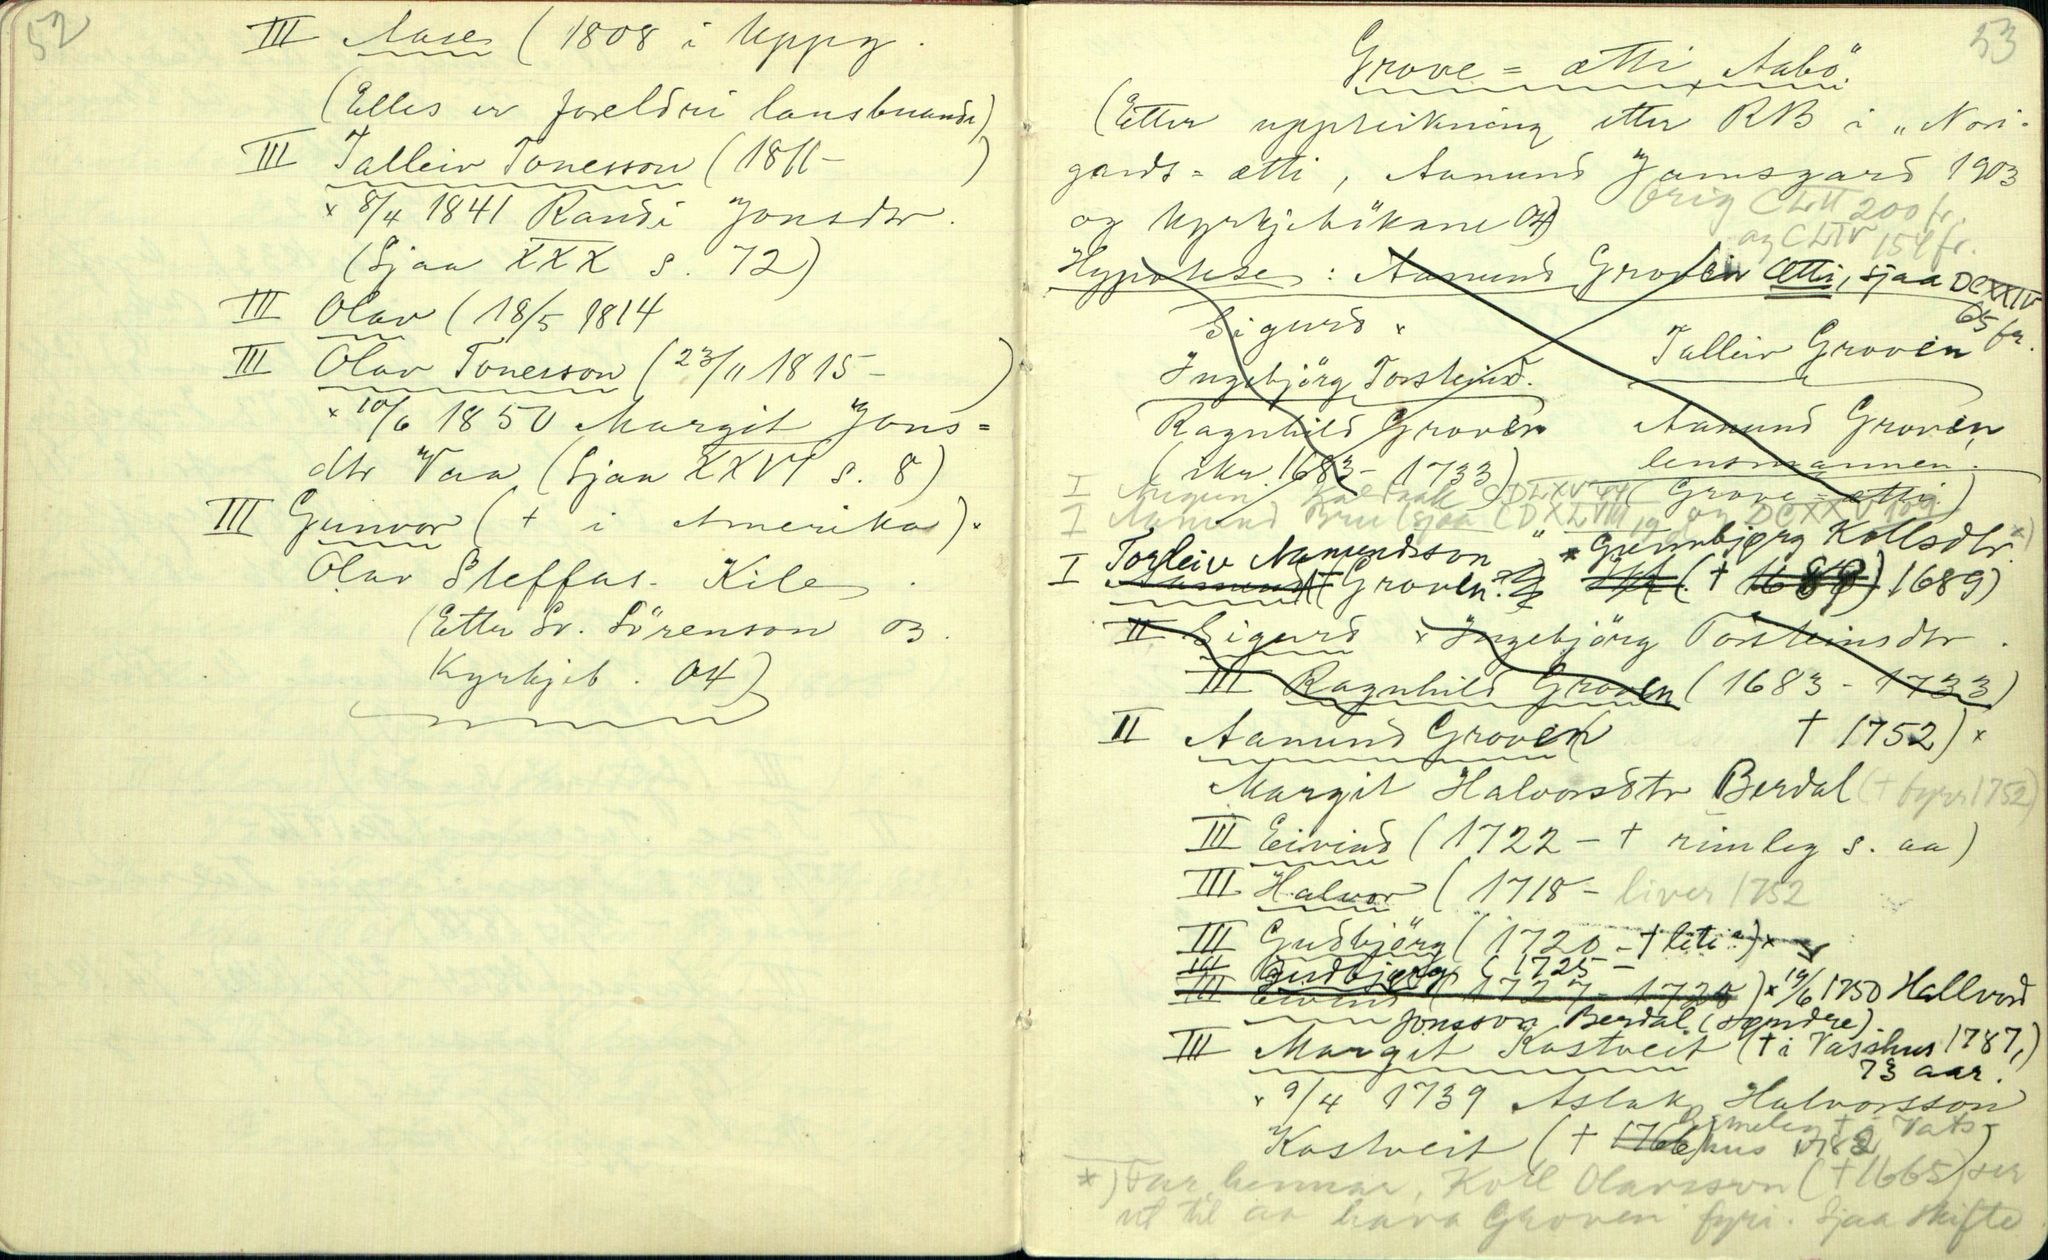 52
III Aase (1808 i Uppg.
(Elles er foreldri lausbuande)
III Talleiv Tonesson (1811- )
× 8/4 1841 Randi Jonsdtr.
(Sjaa XXX s. 72)
III Olav (18/5 1814
III Olav Tonesson (23/11 1815- )
× 10/6 1850 Margit Jons=
dtr Vaa (Sjaa XXVI s. 8)
III Gunvor († i Amerika) ×
Olav Steffas. Kile
(Etter Sv. Sörenson og
Kyrkjeb. 04)
53
Grove = ætti, Aabö.
(Etter uppteikning etter RB i „Nori-
gards = ætti, Aamund Jamsgard 1903
og kyrkjebökane 04)
Orig CLII 200 fr.
og CLIV 154 fr.
Hypotese: Aamund Groven Ætti, sjaa DCXXIV
65 fr.
Sigurd ×
Talleiv Groven
Ingebjörg Torsteinsd.
Ragnhild Groven
Aamund Groven,
(ikr. 1683 - 1733)
lensmannen.
(Grove = ætti)
I Aamund
Torleiv Aamundsson × Gunnbjørg Kollsdtr. *)
I Groven. († 1689)
II Sigurd × Ingebjörg Torsteinsdtr.
III Ragnhild Groven (1683 - 1733)
II Aamund Groven ( † 1752) ×
Margit Halvorsdtr Berdal († fyrr 1752)
III Eivind (1722 - † rimleg s. aa)
III Halvor (1718 - liver 1752
III Gudbjörg (1720 - † liti?) ×
III Gudbjørg (1725 -
III Eivind (1727 - 1728) × 19/6 1750 Hallvord
Jonsson Berdal (søndre).
III Margit Kostveit († i Vasshus 1787,)
73 aar.
× 9/4 1739 Aslak Halvorsson
Rimeleg † i Vats-
Kostveit († 1766) hus 1782)
*) Far hennar, Koll Olavsson († 1665) ser
ut til aa hava Groven fyri. Sjaa skifte